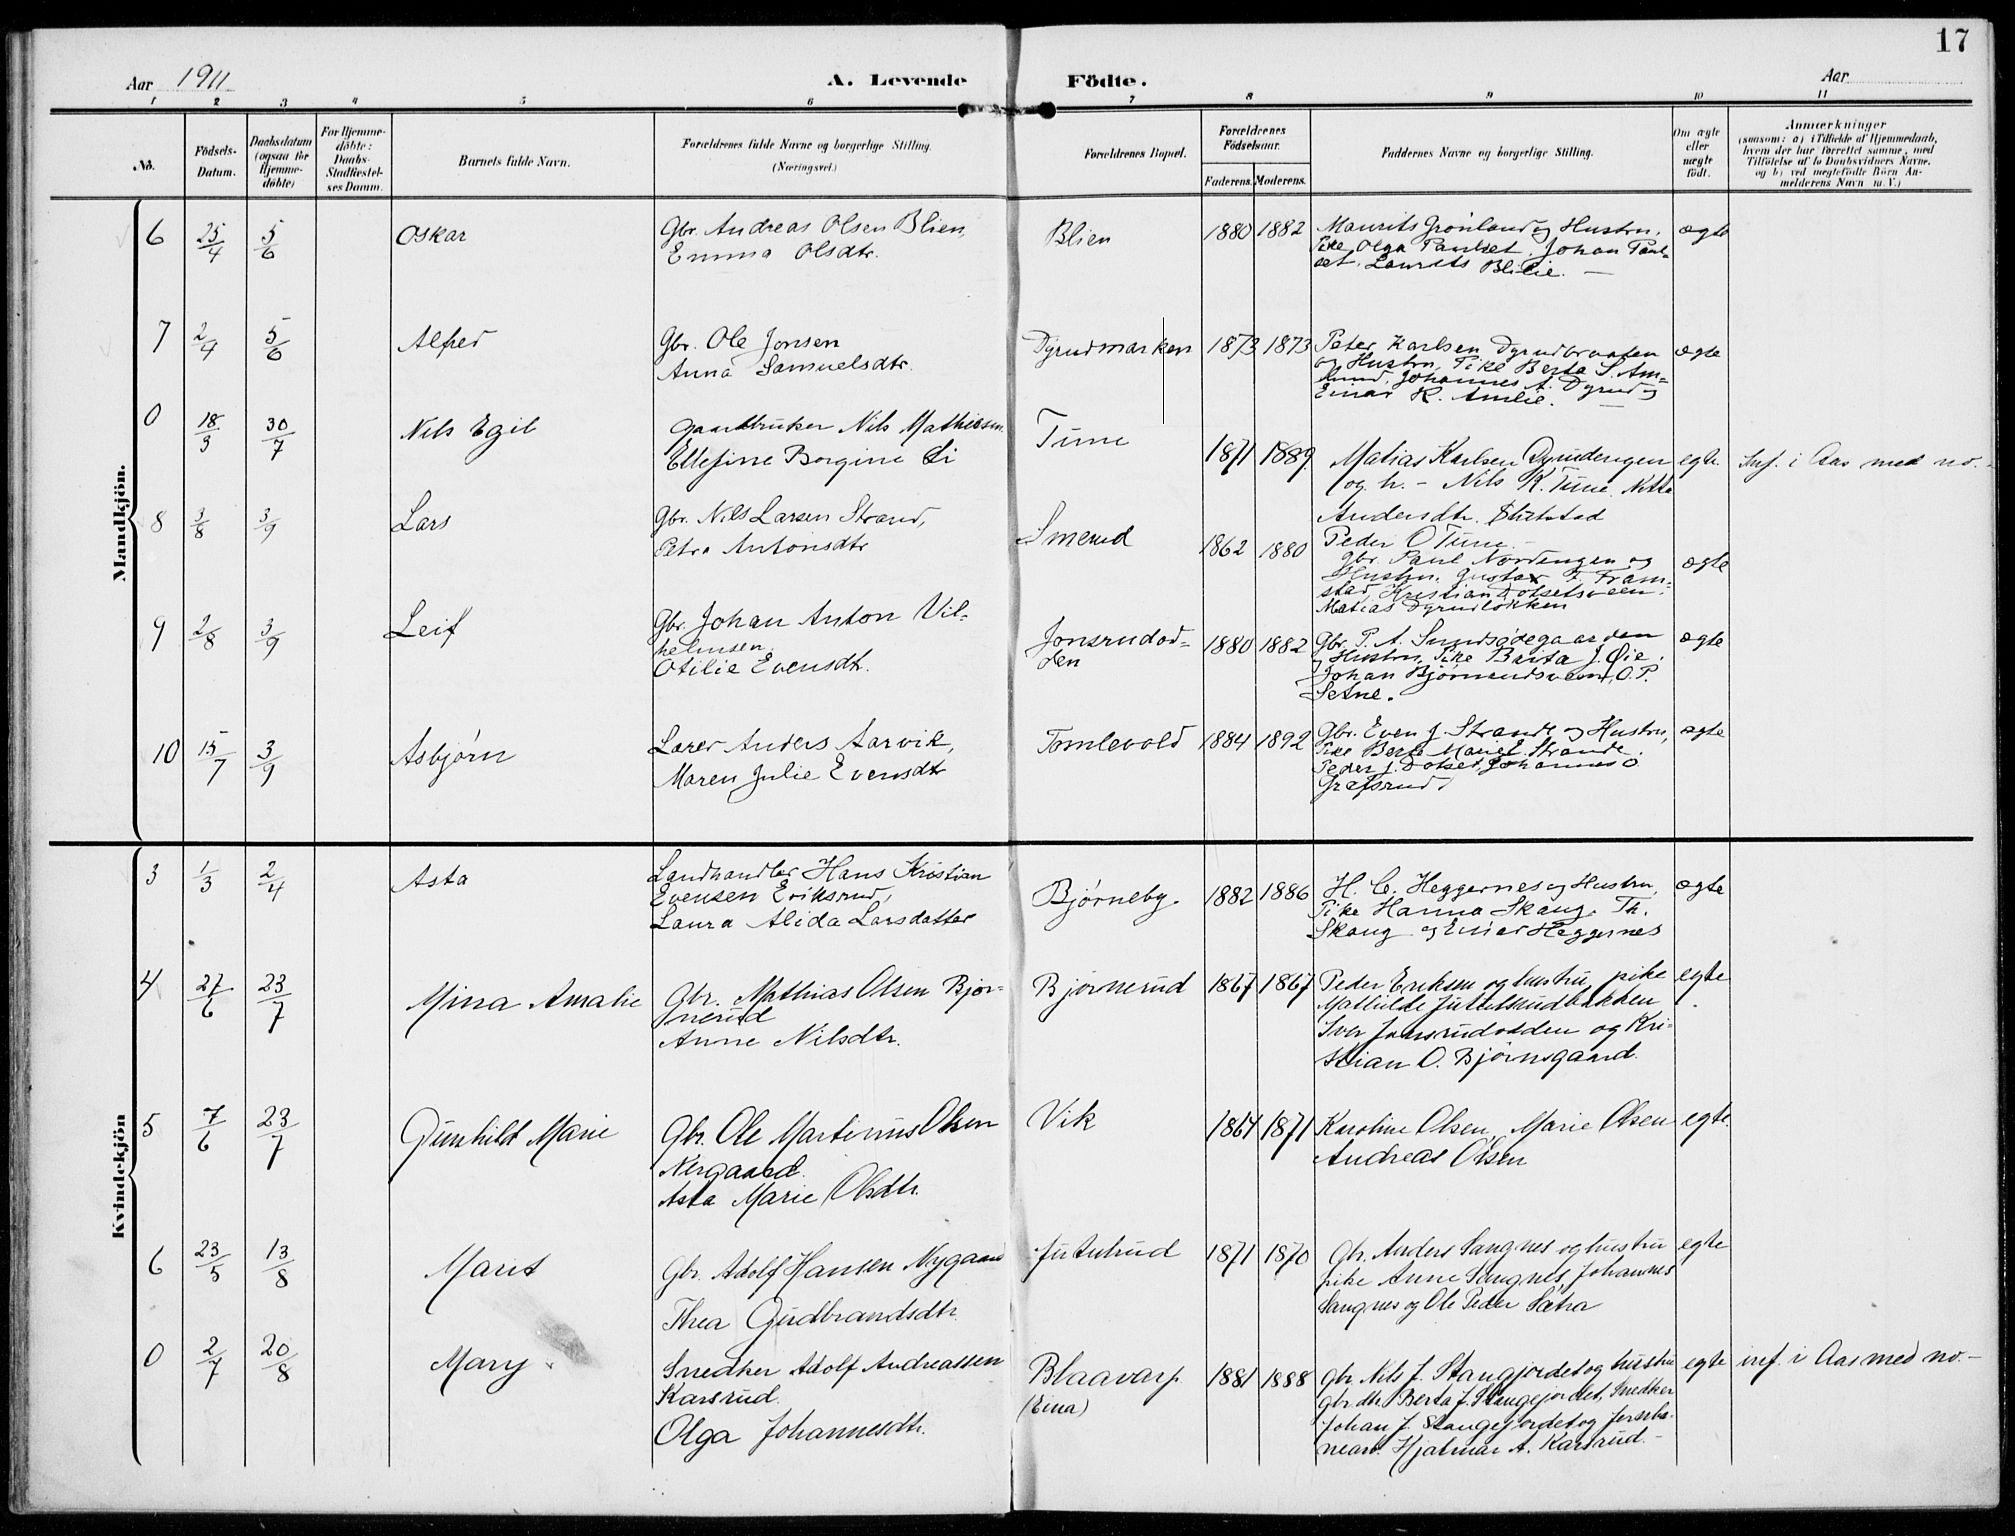 17
Aar 1911
A. Levende Födte.
Aar
1 2 3 4 5 6 7 8 9 10 11
No.
Födsels-
Datum.
Daabsdatum
(ogsaa for
Hjemme-
döbte)
For Hjemme-
döbte:
Daabs-
Stadfæstel-
ses Datum.
Barnets fulde Navn.
Forældrenes fulde Navne og borgerlige Stilling.
(Næringsvei.)
Forældrenes Bopæl.
Forældrenes
Födselsaar.
Faderens. Moderens.
Faddernes Navne og borgerlige Stilling.
Om ægte
eller
uægte
födt.
Anmærkninger
(saasom: a) i Tilfælde af Hjemmedaab,
hvem der har forrettet samme, med
Tilföielse af to Daabsvidners Navne,
og b) ved uægtefödte Börn An-
melderens Navn m. V.)
Mandkjön.
6 25/4 5/6 Oskar
Gbr. Andreas Olsen Blien,
Emma Olsdtr.
Blien 1880 1882
Maurits Grönland og Hustru,
Pike Olga Paulset, Johan Paul-
set, Laurits Blilie. —
ægte
7 2/4 5/6 Alfred
Gbr. Ole Jonsen
Anna Samuelsdtr.
Dyrudmarken 1873 1873
Peter Karlsen Dyrudbraaten
og Hustru, Pike Berta S. Am-
lund, Johannes A. Dyrud og
Einar K. Amlie. —
ægte
0 18/3 30/7 Nils Egil
Gaardbruker Nils Mathiesen
Ellefine Borgine Li
Tune 1871 1889
Matias Karlsen Dyrudengen
og h. - Nils K. Tune
Andersdtr.
Peder O Tune. -
egte
Inf. i Aas med no. -
8 3/8 3/9 Lars
Gbr. Nils Larsen Strand,
Petra Antonsdtr
Smerud 1862 1880
Gbr. Paul Nordengen og
Hustru, Gustav F. Fram-
stad, Kristian Dotsetsveen.
Matias Dyrudløkken
ægte
9 2/8 3/9 Leif
Gbr. Johan Anton Vil-
helmsen,
Otilie Evensdtr.
Jonsrudod-
den 1880 1882
Gbr. P. A. Sundsødegaarden
og Hustru, Pike Berta J. Øie.
Johan Bjørnerudsveen, O. P.
Setne.
ægte
10 15/7 3/9 Asbjørn
Lærer Anders Aarvik,
Maren Julie Evensdtr
Tomlevold 1884 1892
Gbr. Even J. Strande og Hustru,
Pike Berte Marie E. Strande.
Peder J. Dotset, Johannes O.
Græfsrud
ægte
Kvindekjön
3 1/3 2/4 Asta
Landhandler Hans Kristian
Evensen Eriksrud,
Laura Alida Larsdatter
Bjørneby. 1882 1886
H. C. Heggernes og Hustru,
Pike Hanna Skaug. Th.
Skaug og Einar Heggernes
ægte
4 27/6 23/7 Mina Amalie
Gbr. Mathias Olsen Bjør-
nerud
Anne Nilsdtr.
Bjørnerud 1867 1867
Peder Eriksen og hustru, pike
Mathilde Jutulrudbakken
Iver Jonsrudodden og Kri-
stian O. Bjørnsgaard.
egte
5 7/6 23/7 Gunhild Marie
Gbr. Ole Martinius Olsen
Nergaard.
Asta Marie Olsdtr.
Vik 1864 1871
Karoline Olsen, Marie Olsen
Andreas Olsen
egte.
6 23/5 13/8 Marit
Gbr. Adolf Hansen Nygaard
Thea Gudbrandsdtr.
Jutulrud 1871 1870
Gbr. Anders Sangnes og hustru
pike Anne Sangnes, Johannes
Sangnes og Ole Peder Sætra
egte
0 2/7 20/8 Mary
Snedker Adolf Andreassen
Karsrud.
Olga Johannesdtr.
Blaavarp
(Eina) 1881 1888
Gbr. Nils J. Stangjordet og hustru
gbr.dtr. Berta J. Stangejordet, Snedker
Johan J. Stangejordet og Jernba-
nearb. Hjalmar A. Karsrud. -
egte
inf. i Aas med no. -